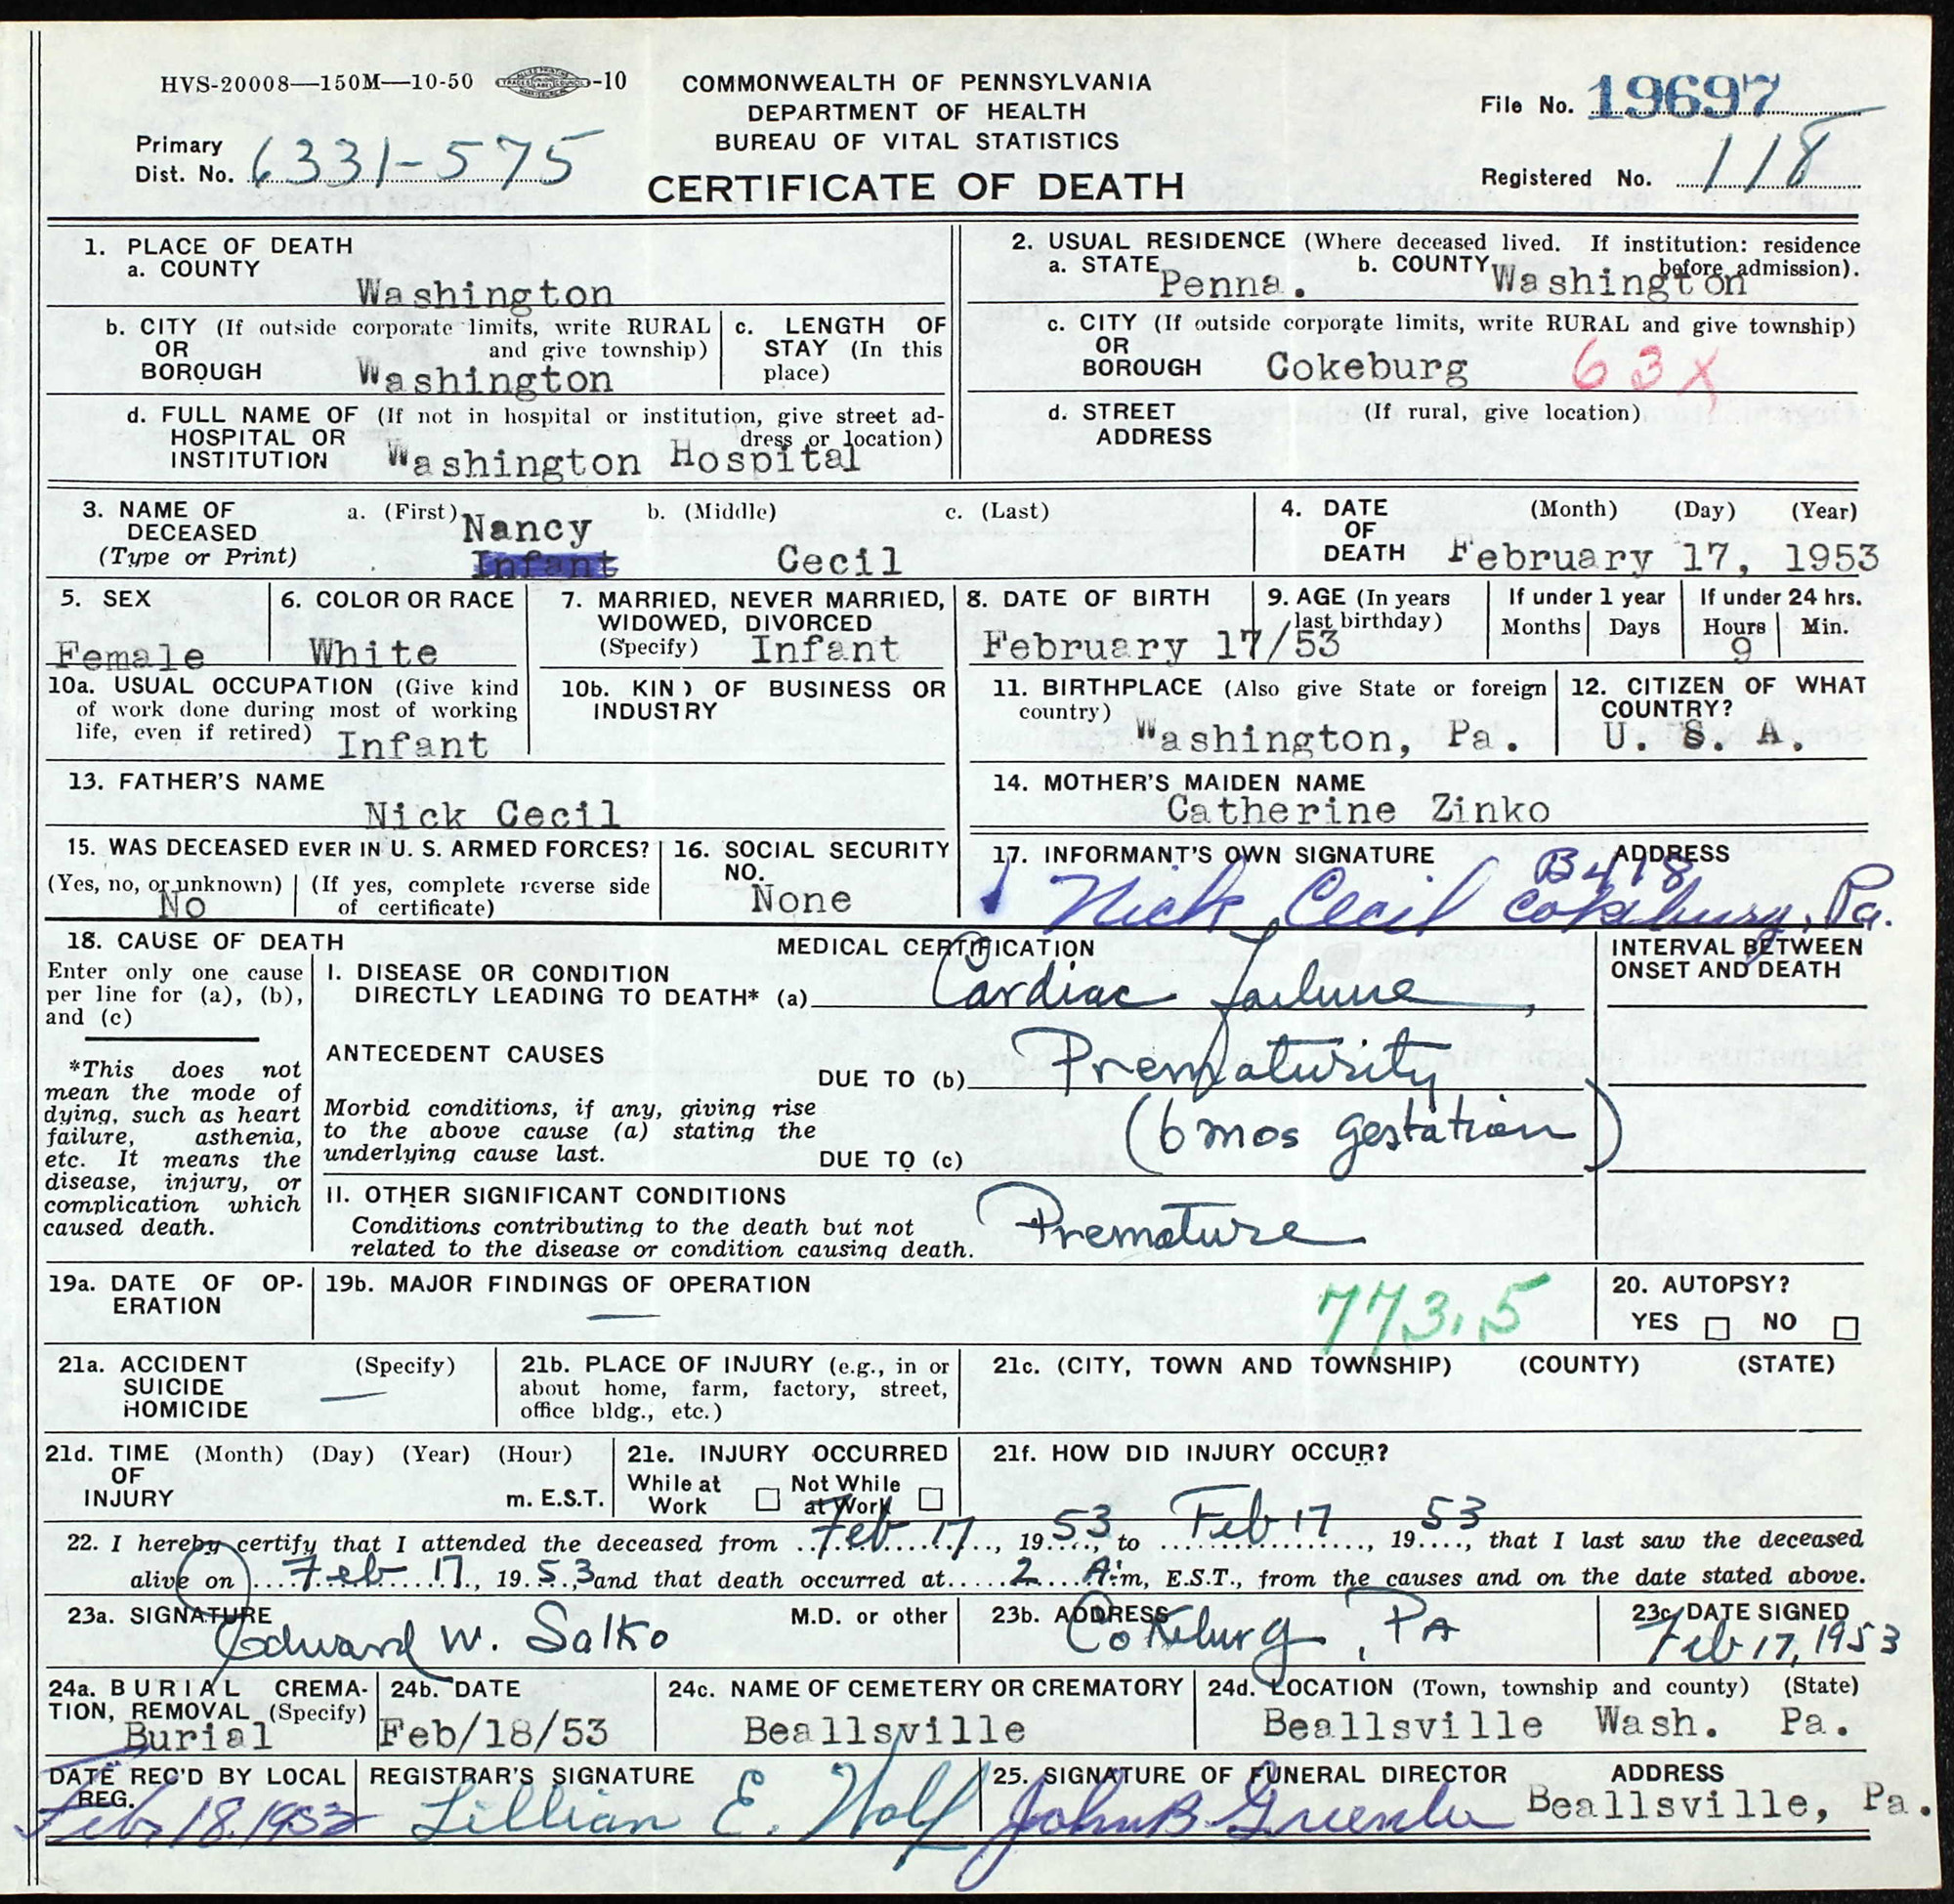 HVS-20008—150M—10-50 -10
COMMONWEALTH OF PENNSYLVANIA
DEPARTMENT OF HEALTH
BUREAU OF VITAL STATISTICS
CERTIFICATE OF DEATH
File No. 19697
Primary
Dist. No. 6331-575
Registered No. 118
1. PLACE OF DEATH
a. COUNTY
Washington
b. CITY (If outside corporate limits, write RURAL
OR and give township)
BOROUGH Washington
c. LENGTH OF
STAY (In this
place)
d. FULL NAME OF (If not in hospital or institution, give street ad-
HOSPITAL OR dress or location)
INSTITUTION Washington Hospital
2. USUAL RESIDENCE (Where deceased lived. If institution: residence
before admission).
a. STATE Penna. b. COUNTY Washington
c. CITY (If outside corporate limits, write RURAL and give township)
OR
BOROUGH Cokeburg 63X
d. STREET (If rural, give location)
ADDRESS
3. NAME OF a. (First) b. (Middle) c. (Last)
DECEASED Nancy
(Type or Print) Infant Cecil
4. DATE (Month) (Day) (Year)
OF
DEATH February 17, 1953
5. SEX
Female
6. COLOR OR RACE
White
7. MARRIED, NEVER MARRIED,
WIDOWED, DIVORCED
(Specify) Infant
8. DATE OF BIRTH
February 17/53
9. AGE (In years
last birthday)
If under 1 year
Months Days
If under 24 hrs.
Hours Min.
9
10a. USUAL OCCUPATION (Give kind
of work done during most of working
life, even if retired) Infant
10b. KIND OF BUSINESS OR
INDUSTRY
11. BIRTHPLACE (Also give State or foreign
country)
Washington, Pa.
12. CITIZEN OF WHAT
COUNTRY?
U. S. A.
13. FATHER'S NAME
Nick Cecil
14. MOTHER'S MAIDEN NAME
Catherine Zinko
15. WAS DECEASED EVER IN U. S. ARMED FORCES?
(Yes, no, or unknown) (If yes, complete reverse side
No of certificate)
16. SOCIAL SECURITY
NO.
None
17. INFORMANT'S OWN SIGNATURE ADDRESS
B418
Nick Cecil Cokeburg, Pa.
18. CAUSE OF DEATH
Enter only one cause
per line for (a), (b),
and (c)
*This does not
mean the mode of
dying, such as heart
failure, asthenia,
etc. It means the
disease, injury, or
complication which
caused death.
MEDICAL CERTIFICATION
I. DISEASE OR CONDITION
DIRECTLY LEADING TO DEATH* (a) Cardiac failure,
ANTECEDENT CAUSES
DUE TO (b) Prematurity
Morbid conditions, if any, giving rise
to the above cause (a) stating the
underlying cause last.
DUE TO (c) (6 mos gestation)
II. OTHER SIGNIFICANT CONDITIONS
Conditions contributing to the death but not
related to the disease or condition causing death.
Premature
INTERVAL BETWEEN
ONSET AND DEATH
19a. DATE OF OP-
ERATION
19b. MAJOR FINDINGS OF OPERATION
—
773.5
20. AUTOPSY?
YES NO
21a. ACCIDENT (Specify)
SUICIDE —
HOMICIDE
21b. PLACE OF INJURY (e.g., in or
about home, farm, factory, street,
office bldg., etc.)
21c. (CITY, TOWN AND TOWNSHIP) (COUNTY) (STATE)
21d. TIME (Month) (Day) (Year) (Hour)
OF
INJURY m. E.S.T.
21e. INJURY OCCURRED
While at Not While
Work at Work
21f. HOW DID INJURY OCCUR?
22. I hereby certify that I attended the deceased from Feb 17, 1953, to Feb 17, 1953, that I last saw the deceased
alive on Feb 17, 1953, and that death occurred at 2 A.m, E.S.T., from the causes and on the date stated above.
23a. SIGNATURE M.D. or other
Edward W. Salko
23b. ADDRESS
Cokeburg, PA
23c. DATE SIGNED
Feb 17, 1953
24a. BURIAL CREMA-
TION, REMOVAL (Specify)
Burial
24b. DATE
Feb/18/53
24c. NAME OF CEMETERY OR CREMATORY
Beallsville
24d. LOCATION (Town, township and county) (State)
Beallsville Wash. Pa.
DATE REC'D BY LOCAL
REG.
Feb 18. 1953
REGISTRAR'S SIGNATURE
Lillian E. Wolf
25. SIGNATURE OF FUNERAL DIRECTOR ADDRESS
John B. Greenlee Beallsville, Pa.